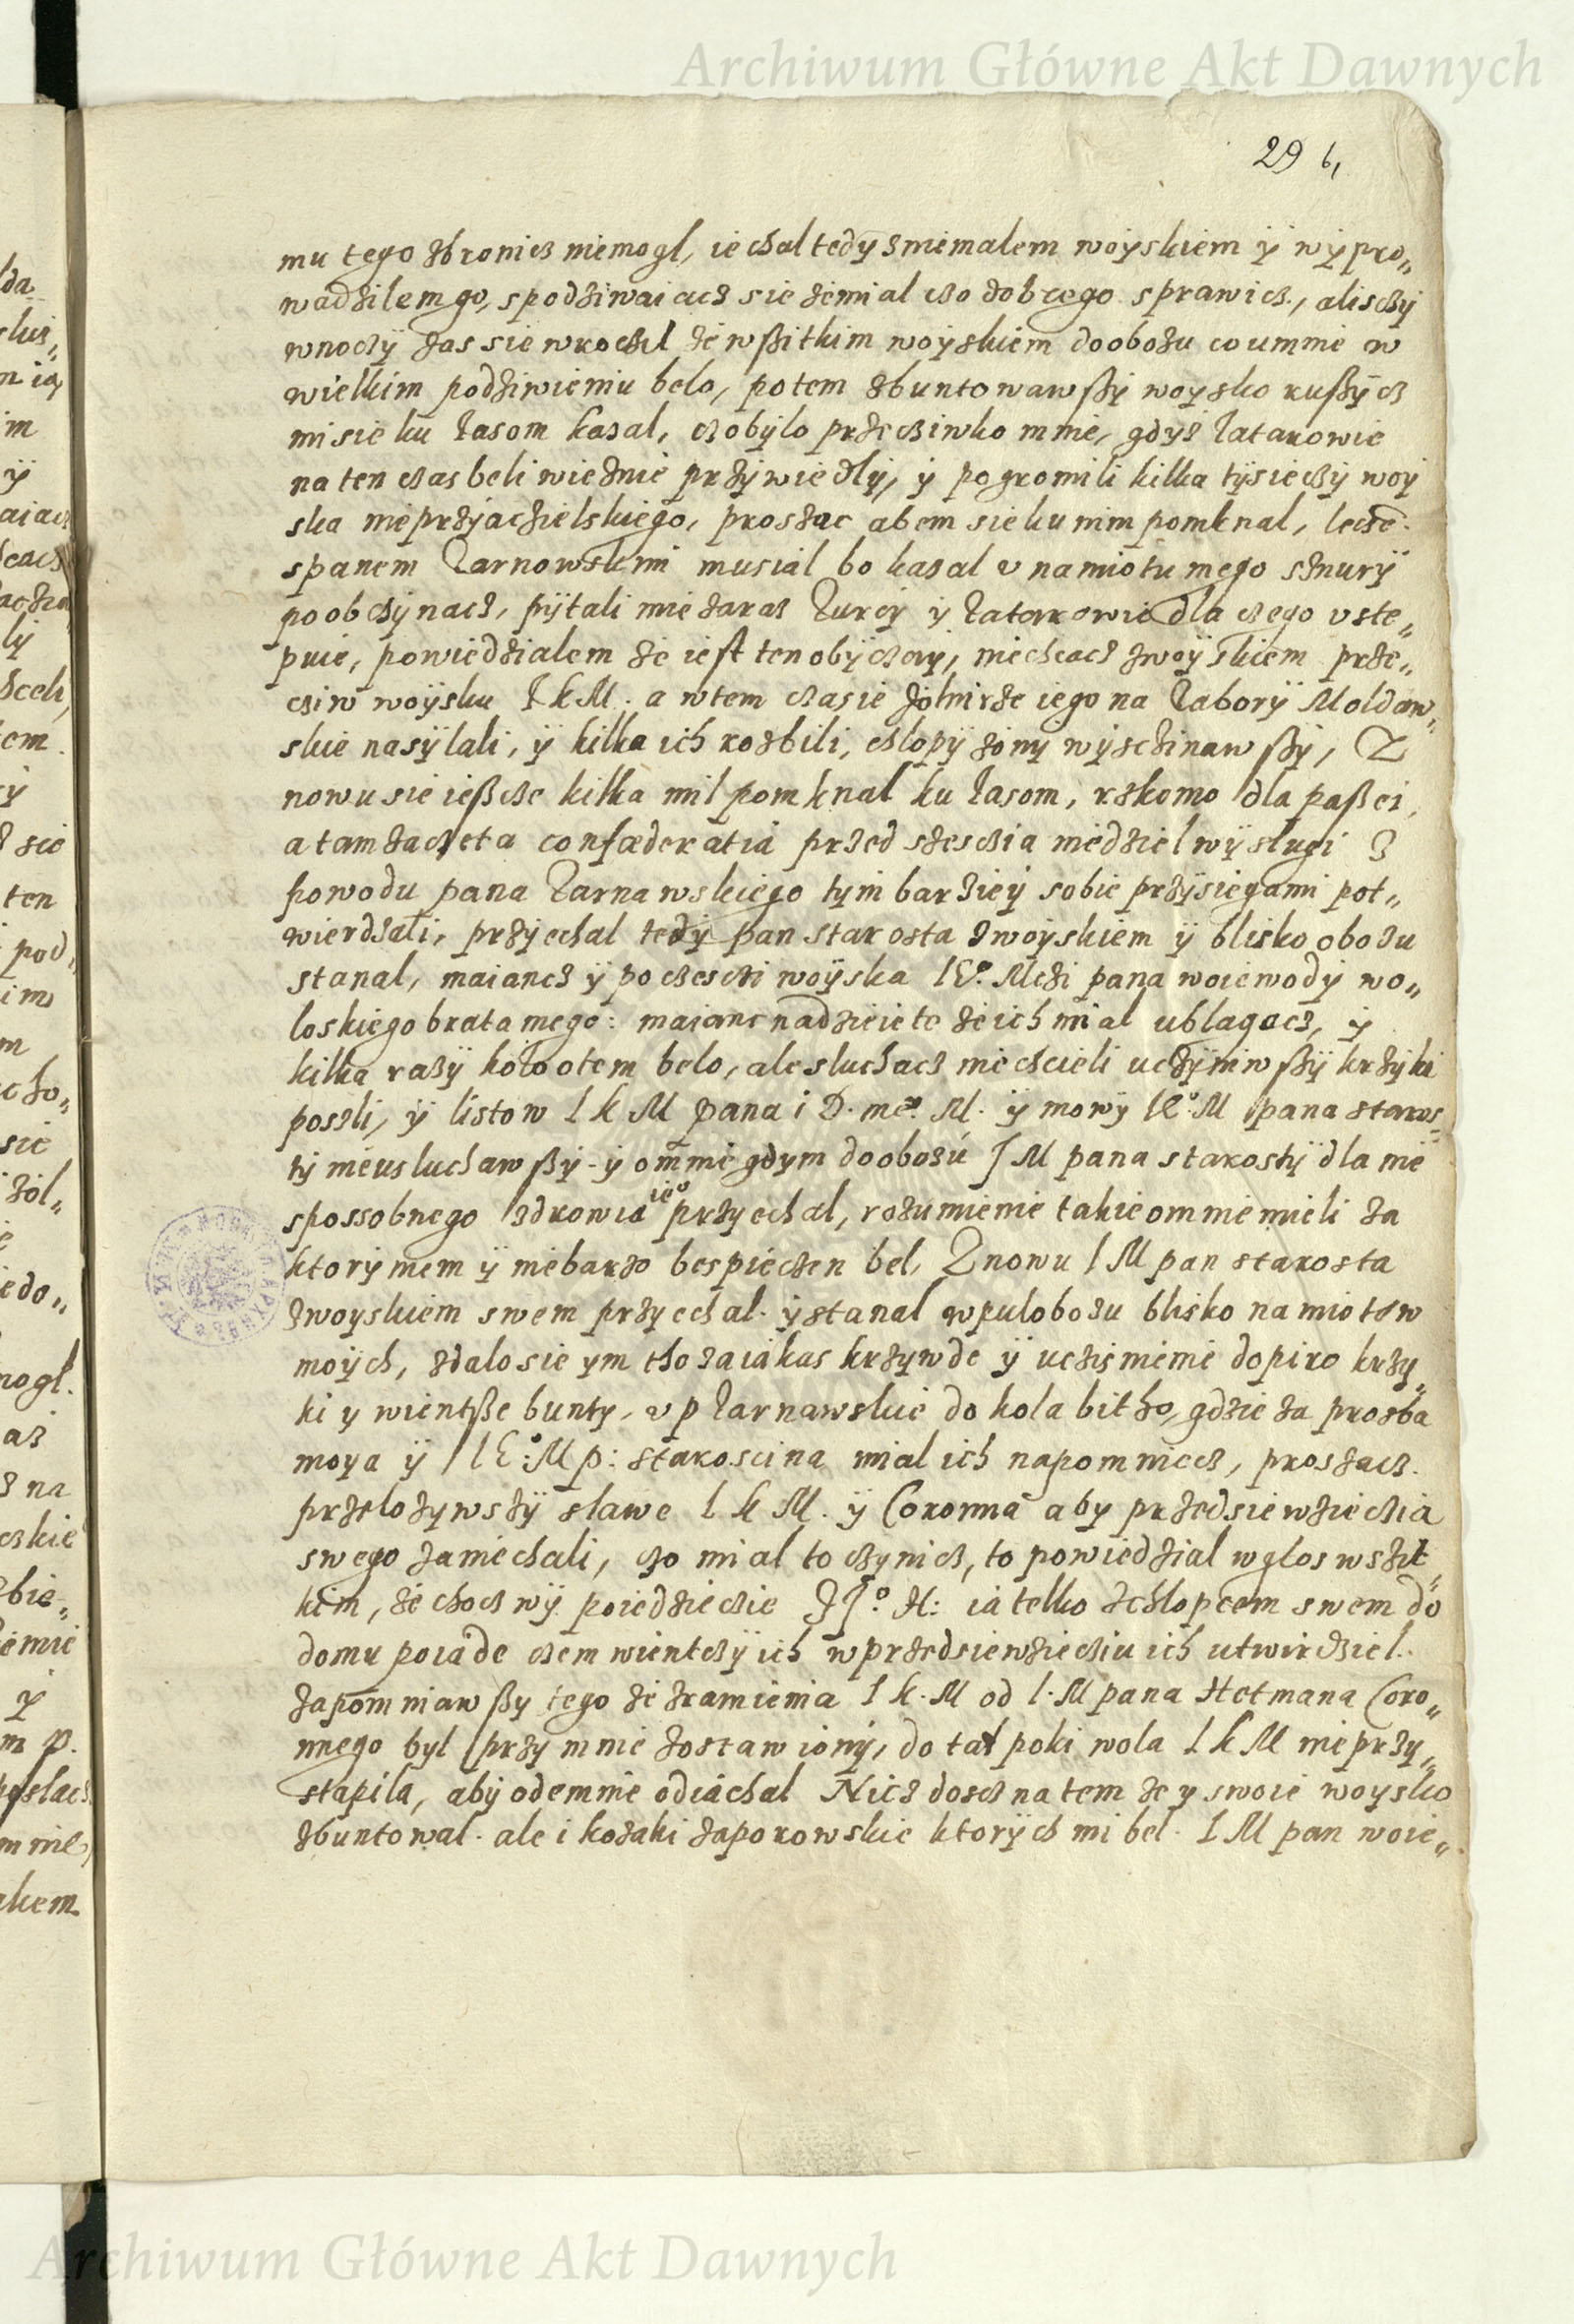 Archiwum Główne Akt Dawnych
29 6,
mu tego zbronicz niemogl, iechal tedÿ zniemalem woÿskiem ÿ wÿpro„
wadzilem go, spodziwaiacz sie zemial czo dobrego sprawicz, alisczÿ
wnoczÿ zas sie wroczil ze wßitkim woÿskiem doobozu co umnie w
wielkim podziwieniu belo, potem zbuntowawßÿ woÿsko rußÿcz
mi sie ku Jasom kazal, czobÿlo przecziwko mnie, gdÿz Tatarowie
na ten czas beli wieznie przÿwiedlÿ, ÿ pogromili kilka tÿsieczÿ woÿ
ska nieprzÿiaczielskiego, proszac abem sie ku nim pomknal, lecze
spanem Tarnowskim musial bo kazal v namiotu mego sznurÿ
poobczÿnacz, pÿtali mie zaraz Turcÿ ÿ Tatarowie dla czego vste„
puie, powiedzialem ze iest ten obÿczaÿ, niechcacz zwoÿskiem prze„
cziw woÿsku I k M. a wtem czasie zolnirze iego na Taborÿ Moldaw„
skie nasÿlali, ÿ kilka ich rozbili, chlopÿ zonÿ wÿsczinawßÿ, Z
nowu sie ießcze kilka mil pomknal ku Jasom, rzkomo dla paßei,
a tam zaczeta confœderatia przed szesczia niedziel wÿslugi z
powodu pana Tarnawskiego tÿm barzieÿ sobie przÿsiegami pot„
wierdzali, przÿechal tedÿ pan starosta zwoÿskiem ÿ blisko obozu
stanal, maiancz ÿ po czesczi woÿska IE.o Mczi pana woiewodÿ wo„
loskiego brata mego: maianc nadzieie te ze ich mial ublagacz, ÿ
kilka razÿ kolo otem belo, ale sluchacz niechcieli uczÿniwßÿ krzÿki
poszli, ÿ listow I k M pana i D. meo. M. ÿ mowÿ IE.o M pana staros„
tÿ nieusluchawßÿ ÿ omnie gdym doobozu I M pana starostÿ dla nie
spossobnego zdrowia ieo przÿechal, rozumienie takie omnie mieli za
ktorÿmem ÿ niebarzo bespieczen bel, Znowu I M pan starosta
zwoÿskiem swem przÿechal ÿ stanal wpulobozu blisko namiotow
moÿch, zdalo sie ym tho za iakas krzÿwde ÿ uczÿnienie dopiro krzÿ„
ki y wientße buntÿ, v p Tarnawskie do kola bitho, gdzie za prosba
moya ÿ IE.o M p: staroscina mial ich napomniecz, proszacz
przelozÿwszÿ slawe I k M. ÿ Coronna aby przedsiewzieczia
swego zaniechali, czo mial to czÿnicz, to powiedzial wglos wszit„
kim, ze chocz wÿ poiedziczie ia telko zchlopcem swem do
domu poiade czem wientczÿ ich wprzedsiewziecziu ich utwirdziel.
zapomniawßy tego ze zramienia I k. M od I. M pana Hetmana Coro„
nnego byl przÿ mnie zostawionÿ, do tad poki wola I k M nieprzÿ„
stapila, abÿ odemnie odiachal Nicz doscz na tem ze y swoie woÿsko
zbuntowal. ale i kozaki zaporowskie ktorÿch mi bel I M pan woie„
Archiwum Główne Akt Dawnych